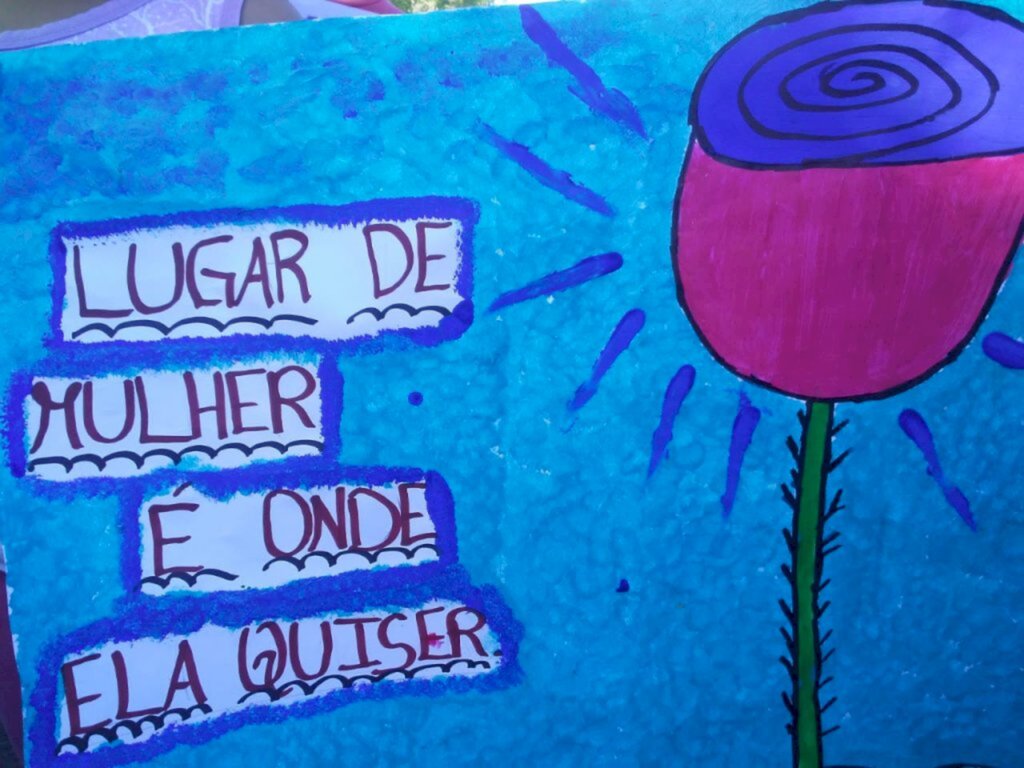 LUGAR DE
MULHER
É ONDE
ELA QUISER